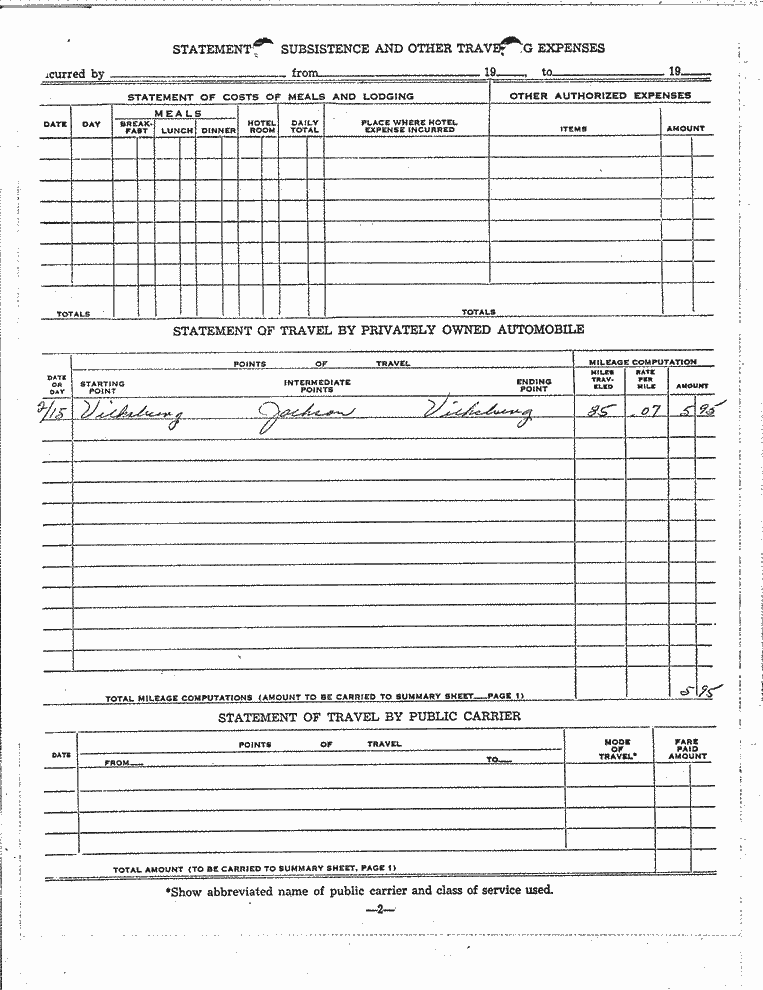 STATEMENT SUBSISTENCE AND OTHER TRAVE G EXPENSES
curred by from 19 , to 19
STATEMENT OF COSTS OF MEALS AND LODGING OTHER AUTHORIZED EXPENSES
DATE DAY MEALS BREAK-FAST LUNCH DINNER HOTEL ROOM DAILY TOTAL PLACE WHERE HOTEL EXPENSE INCURRED ITEMS AMOUNT
TOTALS TOTALS
STATEMENT OF TRAVEL BY PRIVATELY OWNED AUTOMOBILE
POINTS OF TRAVEL MILEAGE COMPUTATION
DATE OR DAY STARTING POINT INTERMEDIATE POINTS ENDING POINT MILES TRAV-ELED RATE PER MILE AMOUNT
2/15 Vicksburg Jackson Vicksburg 85 .07 5 95
TOTAL MILEAGE COMPUTATIONS (AMOUNT TO BE CARRIED TO SUMMARY SHEET—PAGE 1) 5 95
STATEMENT OF TRAVEL BY PUBLIC CARRIER
DATE POINTS OF TRAVEL MODE OF TRAVEL* FARE PAID AMOUNT
FROM— TO—
TOTAL AMOUNT (TO BE CARRIED TO SUMMARY SHEET, PAGE 1)
*Show abbreviated name of public carrier and class of service used.
—2—